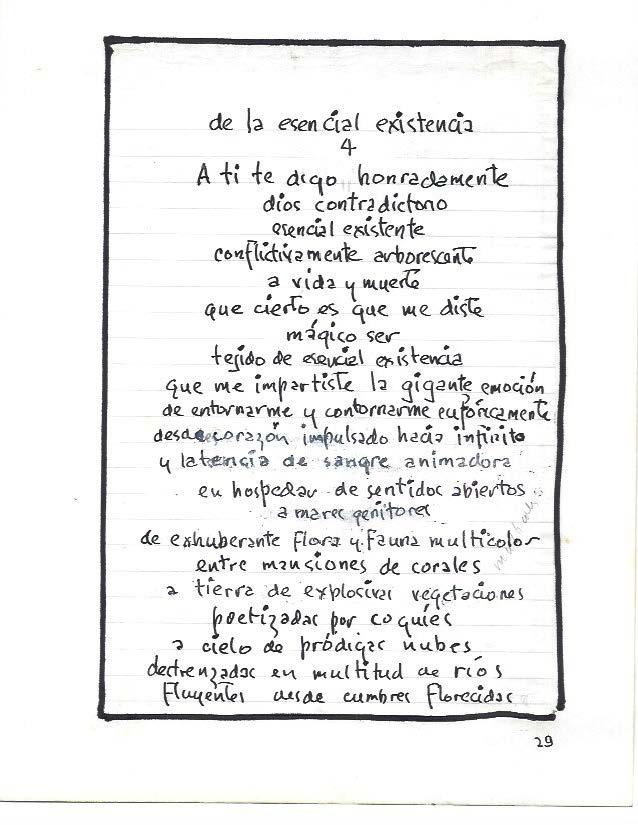 de la esencial existencia
4
A ti te digo honradamente
dios contradictorio
esencial existente
conflictivamente arborescente
a vida y muerte
que cierto es que me diste
mágico ser
tejido de esencial existencia
que me impartiste la gigante emoción
de entornarme y contornarme eufóricamente
desde corazón impulsado hacia infinito
y latencia de sangre animadora
en hospedar de sentidos abiertos
a mares genitores
de exhuberante flora y fauna multicolor
entre mansiones de corales
a tierra de explosivas vegetaciones
poetizadas por coquíes
a cielo de pródigas nubes
destrenzadas en multitud de ríos
fluyentes desde cumbres florecidas
29